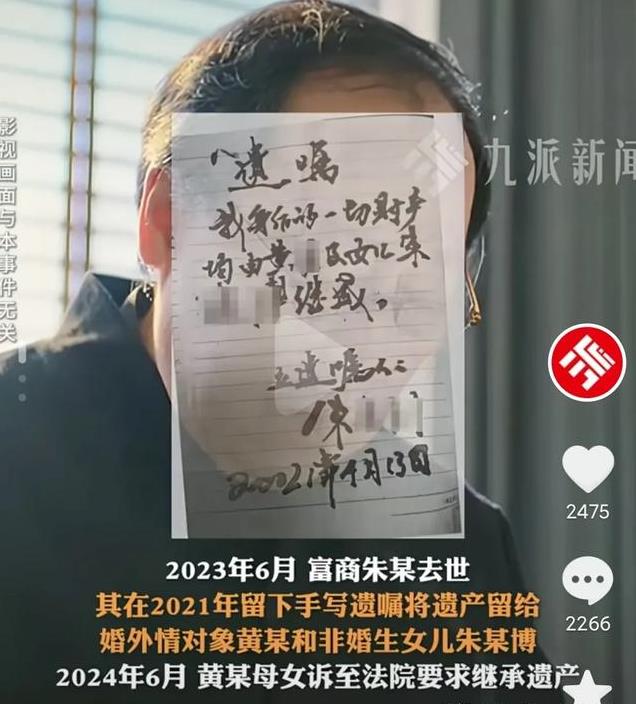 九派新闻
影视画面与本事件无关
遗嘱
我身后的一切财产
均由黄
及女儿朱
继承。
立遗嘱人:
朱
2021年4月13日
2475
2266
2023年6月 富商朱某去世
其在2021年留下手写遗嘱将遗产留给
婚外情对象黄某和非婚生女儿朱某博
2024年6月 黄某母女诉至法院要求继承遗产